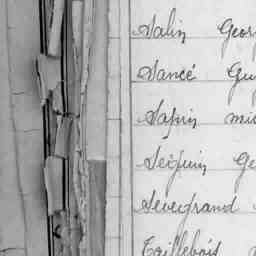 Salin Geor
Sancé Gu
Sapin mi
Seguin Ge
Sevegrand
Taillebois